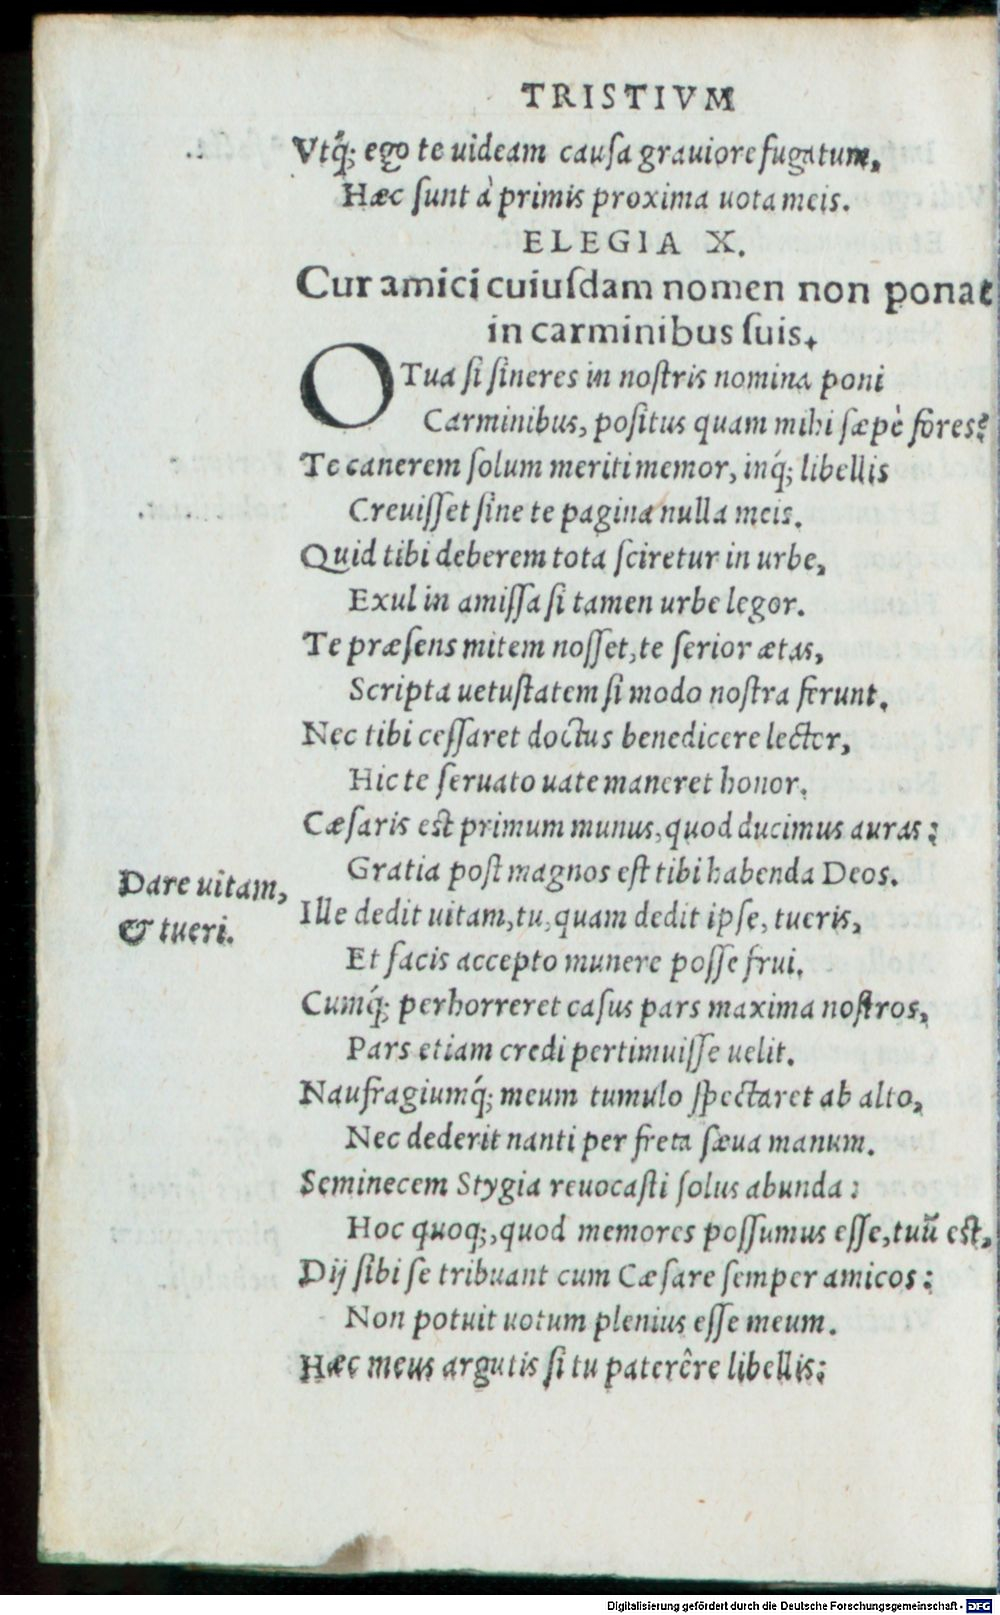 TRISTIVM
Vtq́; ego te uideam cauſa grauiore fugatum,
Hæc ſunt à primis proxima uota meis.
ELEGIA X.
Cur amici cuiuſdam nomen non ponat
in carminibus ſuis.
O Tua ſi ſineres in noſtris nomina poni
Carminibus, poſitus quam mihi ſæpè fores?
Te canerem ſolum meriti memor, inq́; libellis
Creuiſſet ſine te pagina nulla meis.
Quid tibi deberem tota ſciretur in urbe,
Exul in amiſſa ſi tamen urbe legor.
Te præſens mitem noſſet, te ſerior ætas,
Scripta uetuſtatem ſi modo noſtra ferunt.
Nec tibi ceſſaret doctus benedicere lector,
Hic te ſeruato uate maneret honor.
Cæſaris eſt primum munus, quod ducimus auras:
Gratia poſt magnos eſt tibi habenda Deos.
Dare uitam,
& tueri.
Ille dedit uitam, tu, quam dedit ipſe, tueris,
Et facis accepto munere poſſe frui.
Cumq́; perhorreret caſus pars maxima noſtros,
Pars etiam credi pertimuiſſe uelit.
Naufragiumq́; meum tumulo ſpectaret ab alto,
Nec dederit nanti per freta ſæua manum.
Seminecem Stygia reuocaſti ſolus abunda:
Hoc quoq;, quod memores poſſumus eſſe, tuũ eſt,
Dij ſibi ſe tribuant cum Cæſare ſemper amicos:
Non potuit uotum plenius eſſe meum.
Hæc meus argutis ſi tu paterêre libellis;
Digitalisierung gefördert durch die Deutsche Forschungsgemeinschaft - DFG